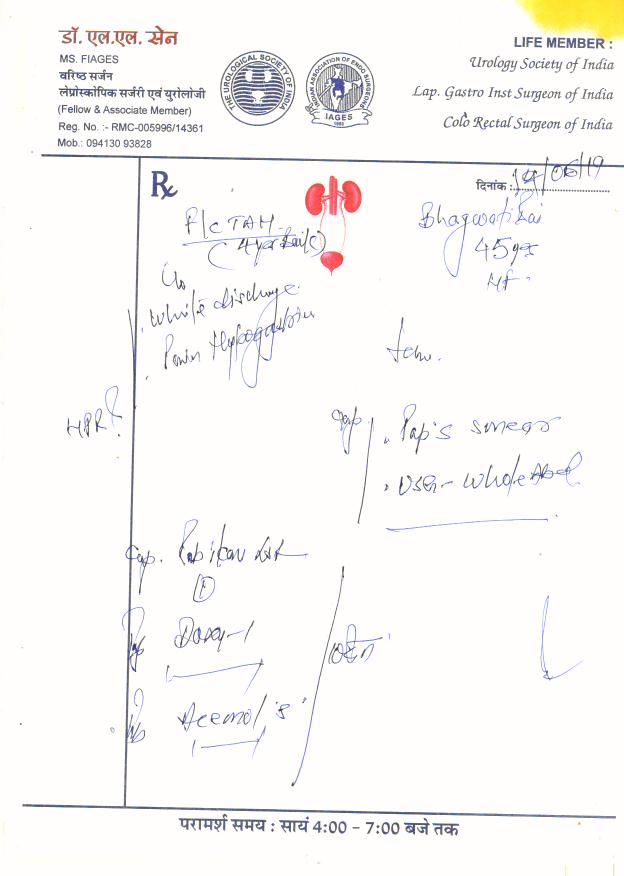 डॉ. एल.एल. सेन
MS. FIAGES
वरिष्ठ सर्जन
लेप्रोस्कोपिक सर्जरी एवं युरोलोजी
(Fellow & Associate Member)
Reg. No. :- RMC-005996/14361
Mob.: 094130 93828
THE UROLOGICAL SOCIETY OF INDIA
INDIAN ASSOCIATION OF ENDO SURGEONS
IAGES
1993
LIFE MEMBER :
Urology Society of India
Lap. Gastro Inst Surgeon of India
Colo Rectal Surgeon of India
Rx
दिनांक : /06/19
F/c TAH
(4 yr
Bhagwatibai
45 yrs
c/o
White discharge
Pain Hypogastrium
HPR?
Pap's smear
USG - Whole Abd
Cap.
①
Doxy-1
Acemol 's'
परामर्श समय : सायं 4:00 - 7:00 बजे तक